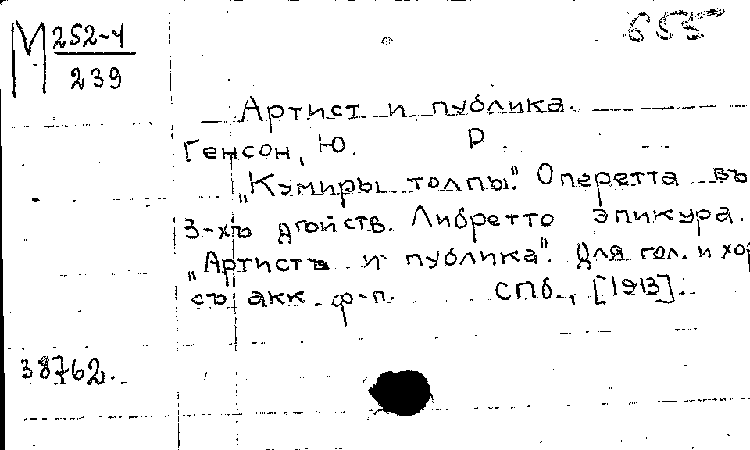 М 252-4
239
655
Артист и публика.
Генсон, Ю. Р.
„Кумиры толпы". Оперетта въ
3-хъ дѣйств. Либретто Эпикура.
„Артистъ и публика". Для гол. и хор
съ акк. ф-п. СПб., [1913].
38762.